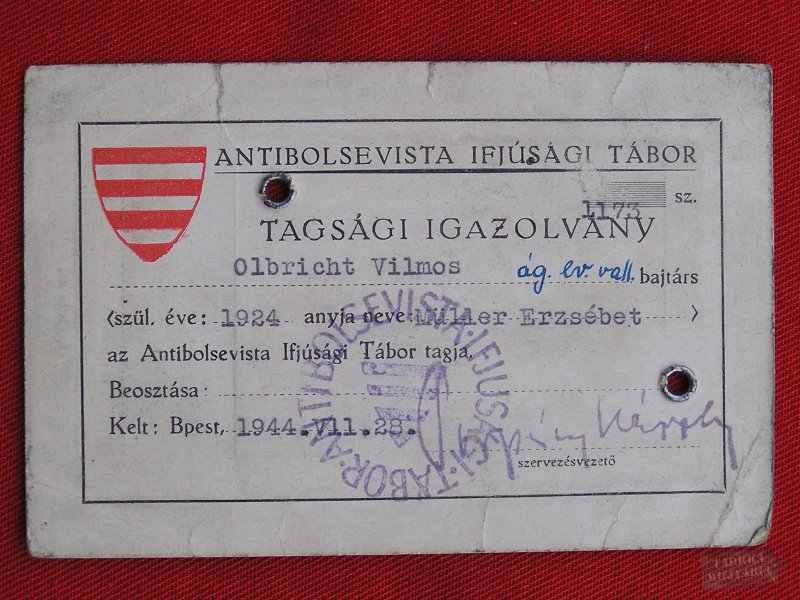 ANTIBOLSEVISTA IFJÚSÁGI TÁBOR
1173 sz.
TAGSÁGI IGAZOLVÁNY
Olbricht Vilmos ág. ev. vall. bajtárs
(szül. éve: 1924 anyja neve: Müller Erzsébet)
az Antibolsevista Ifjúsági Tábor tagja.
Beosztása:
Kelt: Bpest, 1944.VII.28.
Károly
szervezésvezető
ANTIBOLSEVISTA·IFJUSÁGI·TÁBOR·